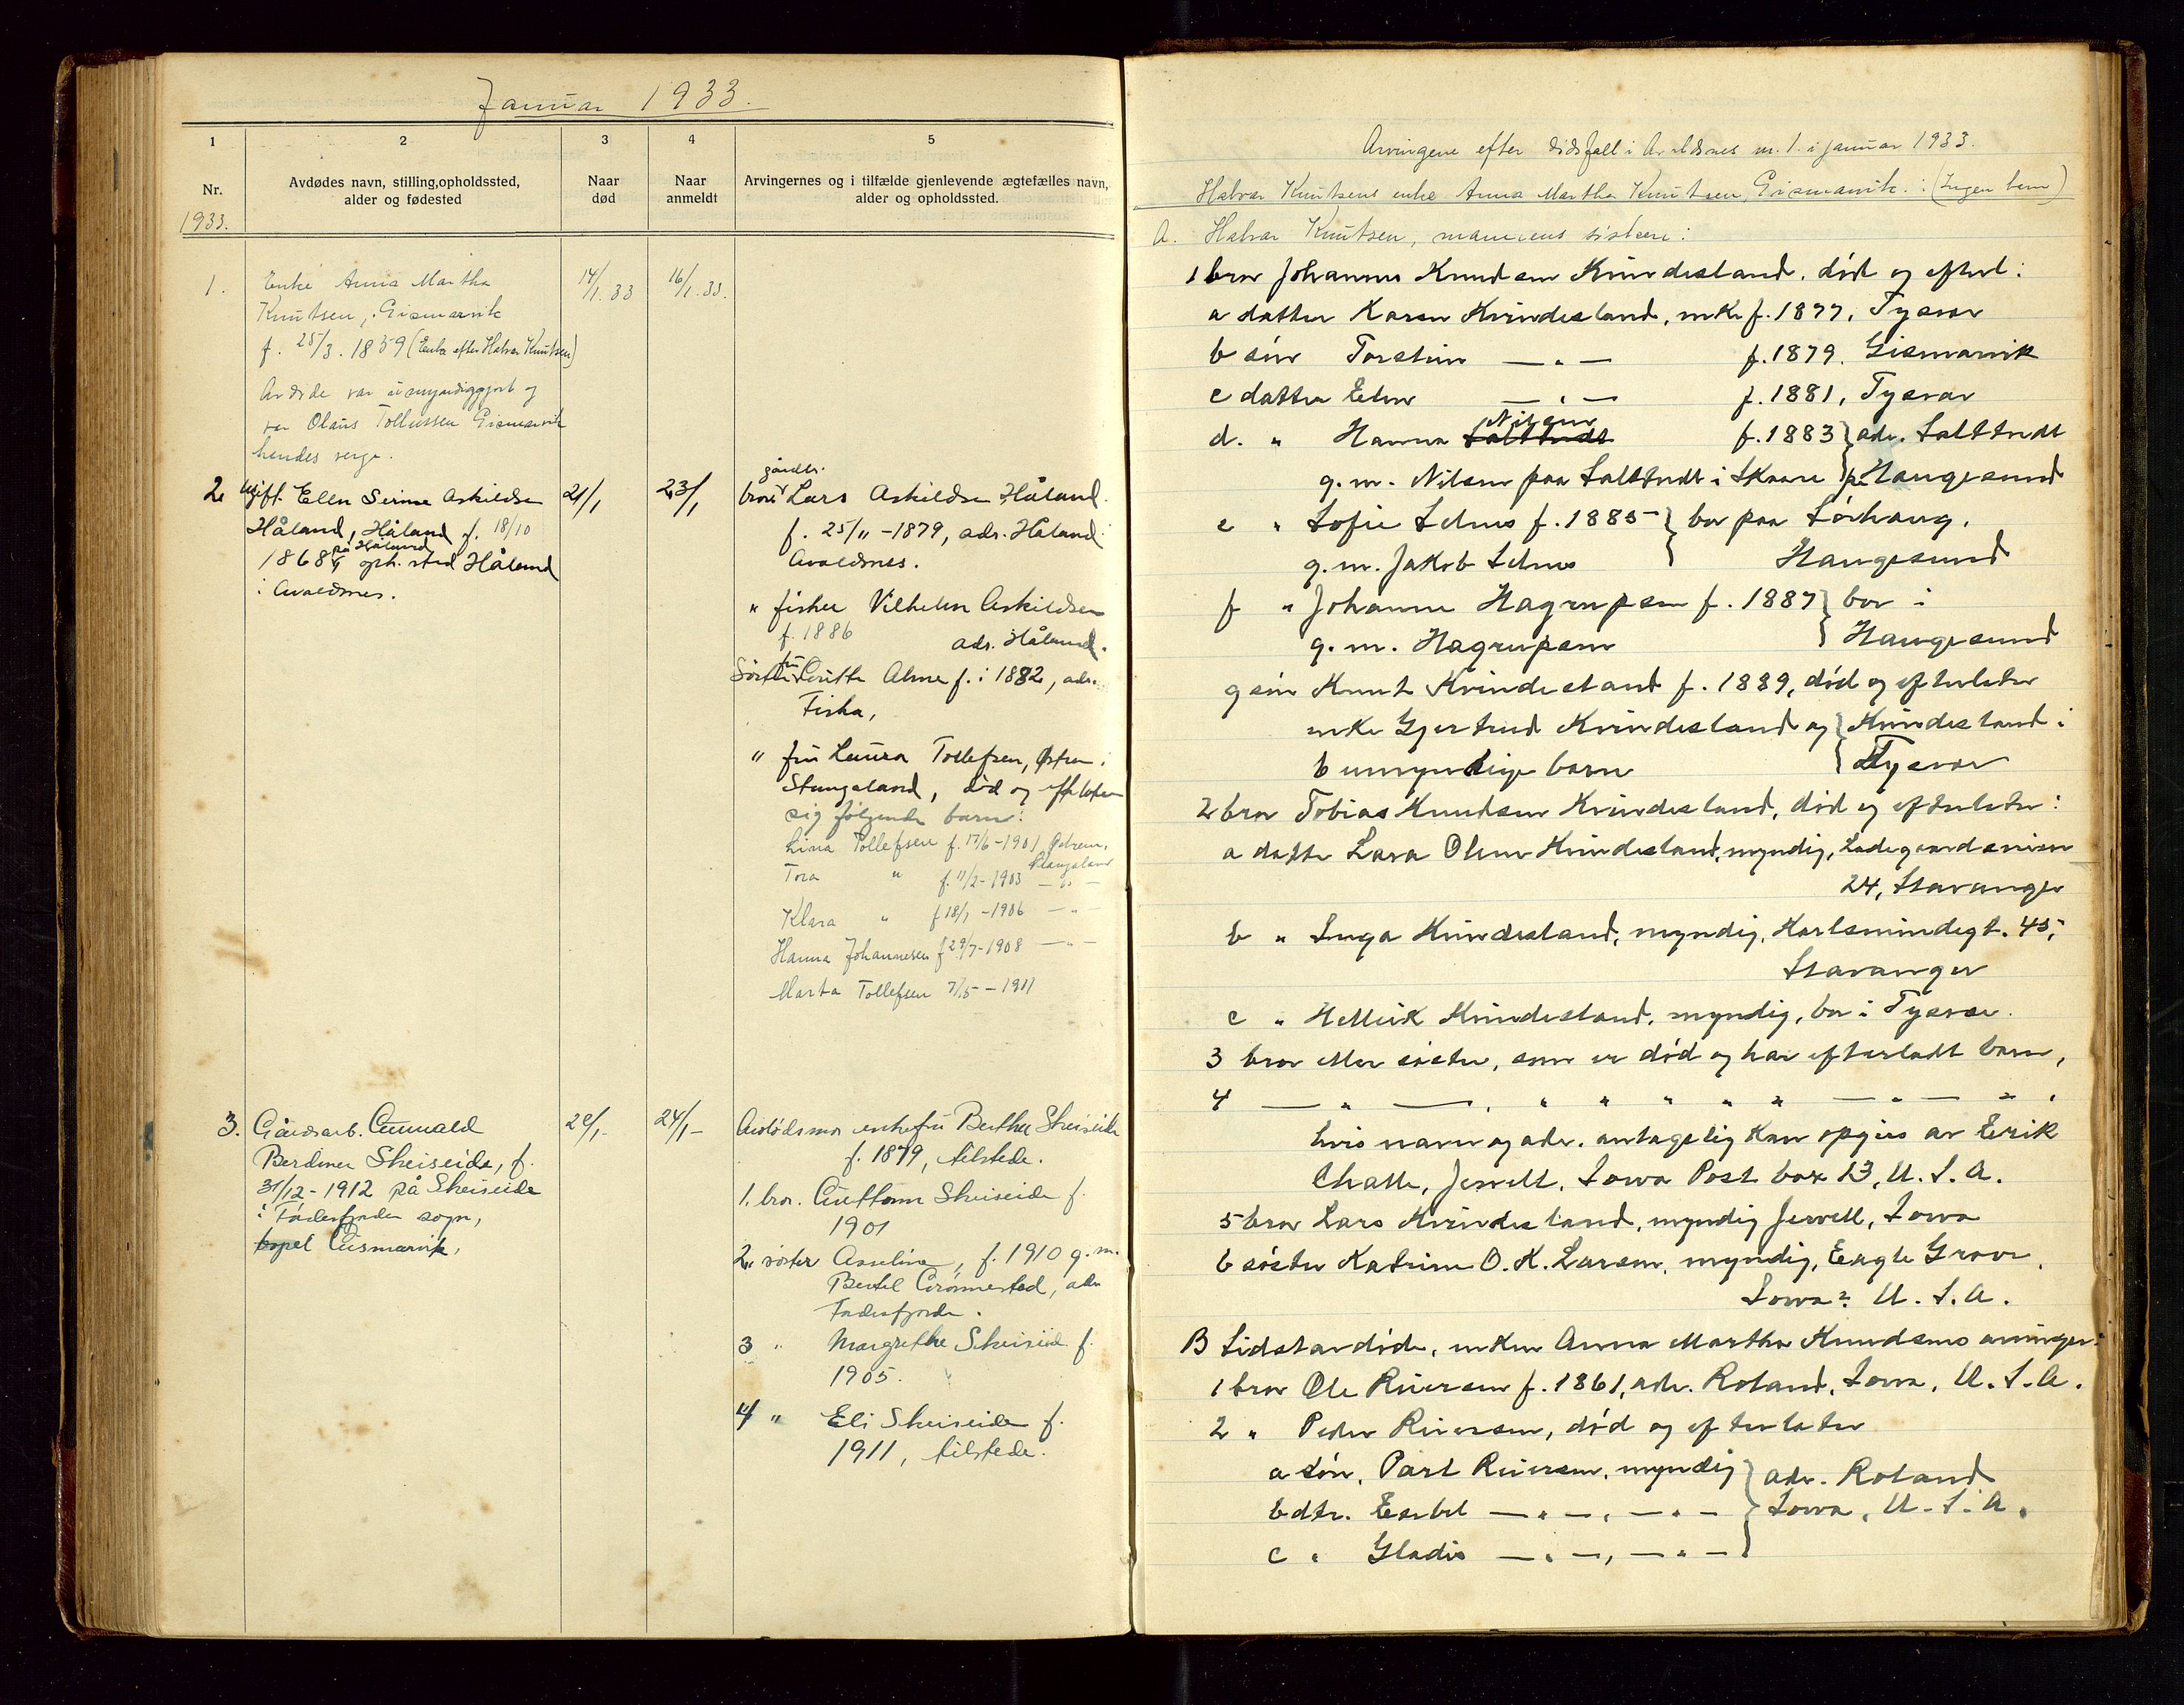 Januar 1933.
1
2
3
4
5
Nr.
Avdødes navn, stilling, opholdssted,
alder og fødested
Naar
død
Naar
anmeldt
Arvingernes og i tilfælde gjenlevende ægtefælles navn,
alder og opholdssted.
1933.
1.
Enke Anna Martha
Knutsen, Gismarvik
f. 25/3. 1859 (Enke efter Halvar Knutsen)
Avdøde var umyndiggjort og
var Olaus Tollussen Gismarvik
hendes verge.
14/1. 33
16/1. 33.
2.
Ugift Ellen Serine Askildsen
Håland, Håland f. 18/10
1868 på Håland oph. sted Håland
i Avaldsnes.
21/1
23/1
bror gårdbr. Lars Askildsen Håland
f. 25/11 - 1879, adr. Håland
Avaldsnes.
" fisker Vilhelm Askildsen
f. 1886 adr. Håland.
Søster fru Lovitte Alme f. i 1882, adr.
Tirka,
" fru Laura Tollefsen, Østrem i
Stangaland, død og efterlater
sig følgende barn:
Lina Tollefsen f. 17/6 - 1901 Østrem,
Stangaland
Tora " f. 11/2 - 1903 — " —
Klara " f 18/1 - 1906 — " —
Hanna Johannesen f 29/7 - 1908 — " —
Marta Tollefsen 7/5 - 1911
3.
Gårdsarb. Gunvald
Berdiner Skeiseide, f.
31/12 - 1912 på Skeiseide
i Førdesfjorden sogn,
bopel Gismarvik,
22/1
24/1
Avdødes mor enkefru Berthe Skeiseide
f. 1879, tilstede.
1. bror. Guttorm Skeiseide f.
1901
2. søster Asseline, f. 1910 g. m.
Bertel Grønnestad, adr
Førdesfjorden.
3 " Margrethe Skeiseide f.
1905.
4 " Eli Skeiseide f.
1911, tilstede.
Arvingene efter dødsfall i Avaldsnes nr. 1. i januar 1933.
Halvar Knutsens enke Anna Martha Knutsen, Gismarvik. : (Ingen barn)
A. Halvar Knutsen, mannens søsken:
1 bror Johannes Knudsen Kvindesland, død og efterl:
a datter Karen Kvindesland, enke f. 1877, Tysvær
b søn Torstein — " — f. 1879. Gismarvik
c datter Elen — " — f. 1881, Tysvær
d. " Hanna Salttredt Nilsen f. 1883 } adr. Salttredt
g. m. Nilsen paa Salttredt i Skaare } pr. Haugesund
e " Sofie Selnes f. 1885 } bor paa Sørhaug,
g. m. Jakob Selnes Haugesund
f " Johanne Hagrupsen f. 1887 } bor i
g. m. Hagrupsen } Haugesund
g søn Knut Kvindesland f. 1889, død og efterlater
enke Gjertrud Kvindesland og } Kvindesland i
6 umyndige barn } Tysvær
2 bror Tobias Knudsen Kvindesland, død og efterlater:
a datter Lava Oline Kvindesland, myndig, Ladegaardsveien
24, Stavanger
b " Inga Kvindesland, myndig, Karlsmindegt. 45,
Stavanger
c " Hellik Kvindesland, myndig, bor i Tysvær.
3 bror eller søster, som er død og har efterladt barn,
4 — " — , " " " " " — " — " ,
hvis navn og adr. antagelig kan opgies av Erik
Chatte, Jewell, Iowa Post box 13, U. S. A.
5 bror Lars Kvindesland, myndig Jewell, Iowa
6 søster Katrine O. K. Larsen, myndig, Eagle Grove,
Iowa: U. S. A.
B Sidstavdøde, enken Anna Martha Knudsens arvinger:
1 bror Ole Riversen f. 1861, adr. Roland, Iowa, U. S. A.
2 " Peder Riversen, død og efterlater
a søn, Parl Riversen, myndig } adr. Roland
b dtr. Esebel — " — , — " — } Iowa, U. S. A.
c " Gladis — " — , — " —